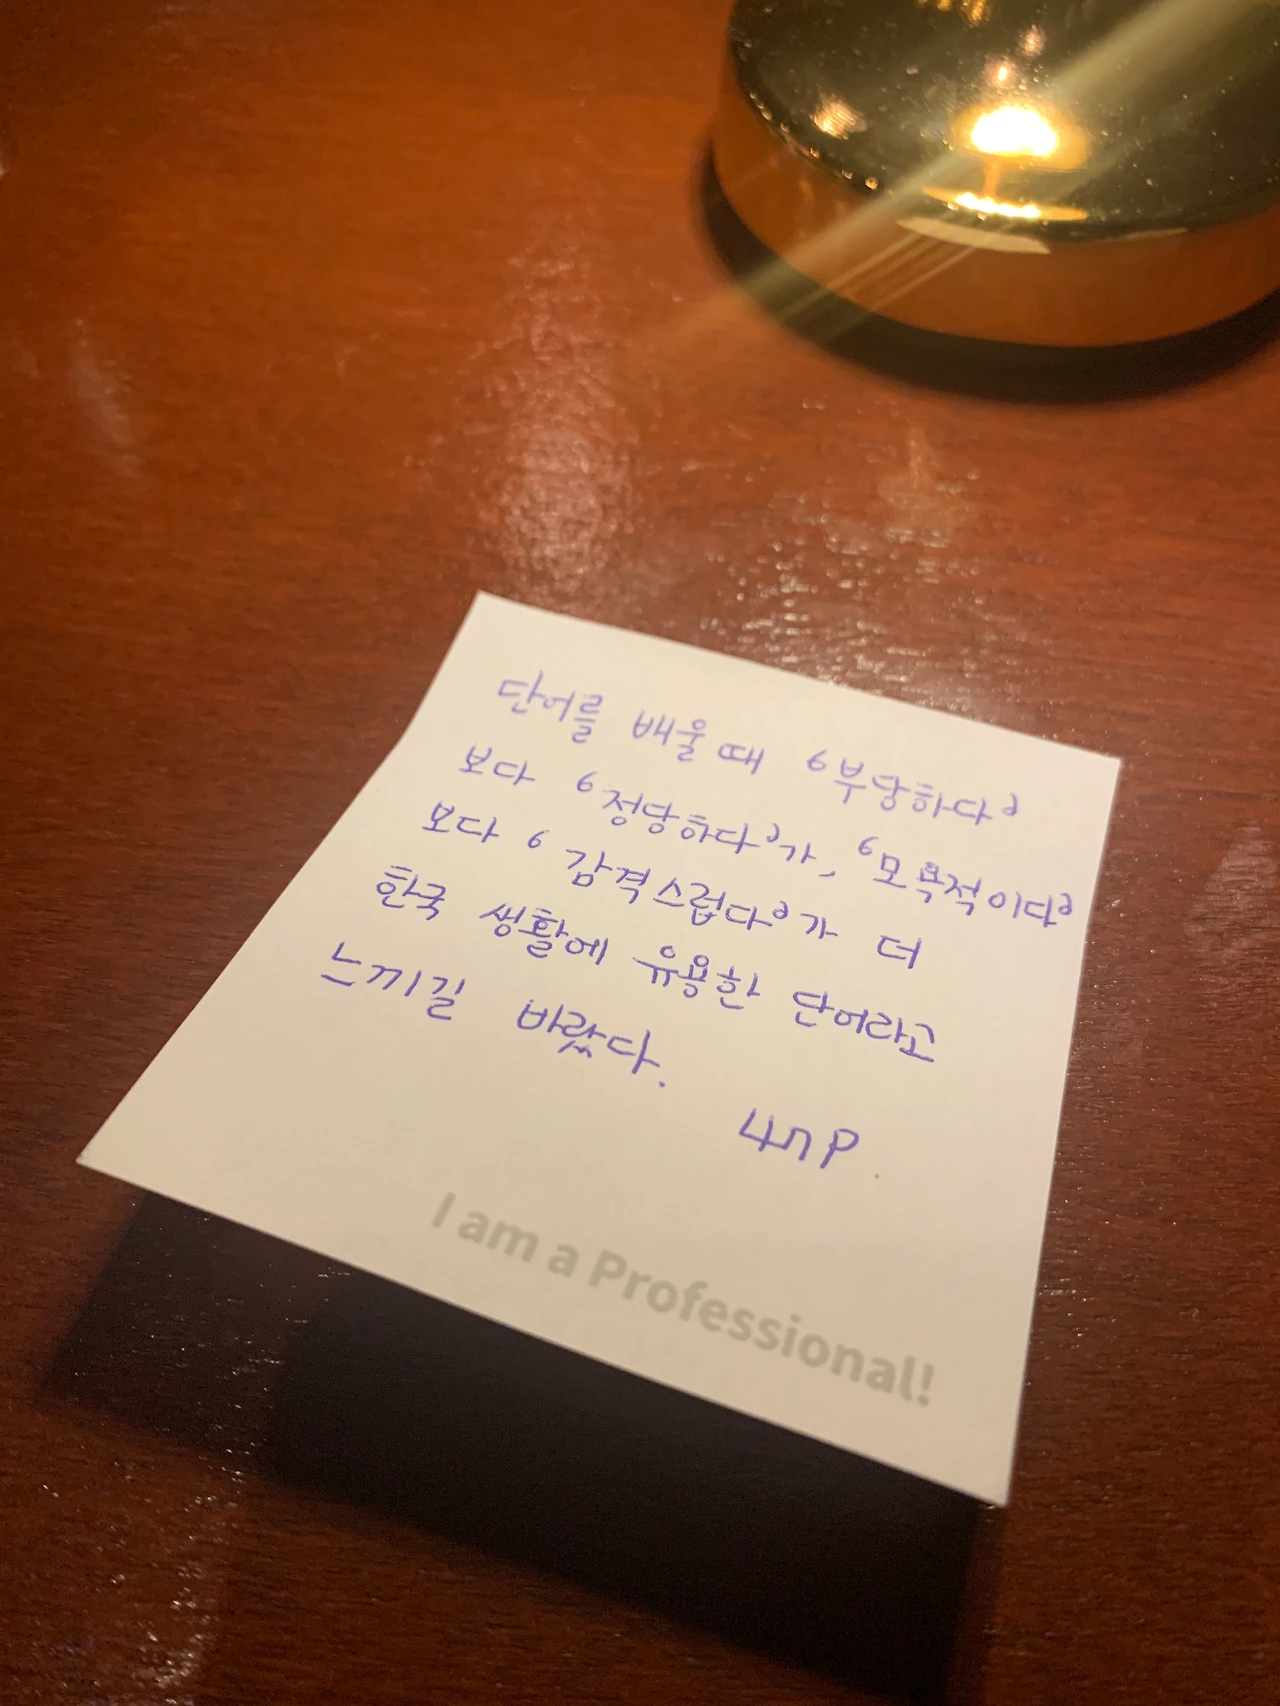 단어를 배울 때 '부당하다'
보다 '정당하다'가, '모욕적이다'
보다 '감격스럽다'가 더
한국 생활에 유용한 단어라고
느끼길 바랐다.
47P.
I am a Professional!